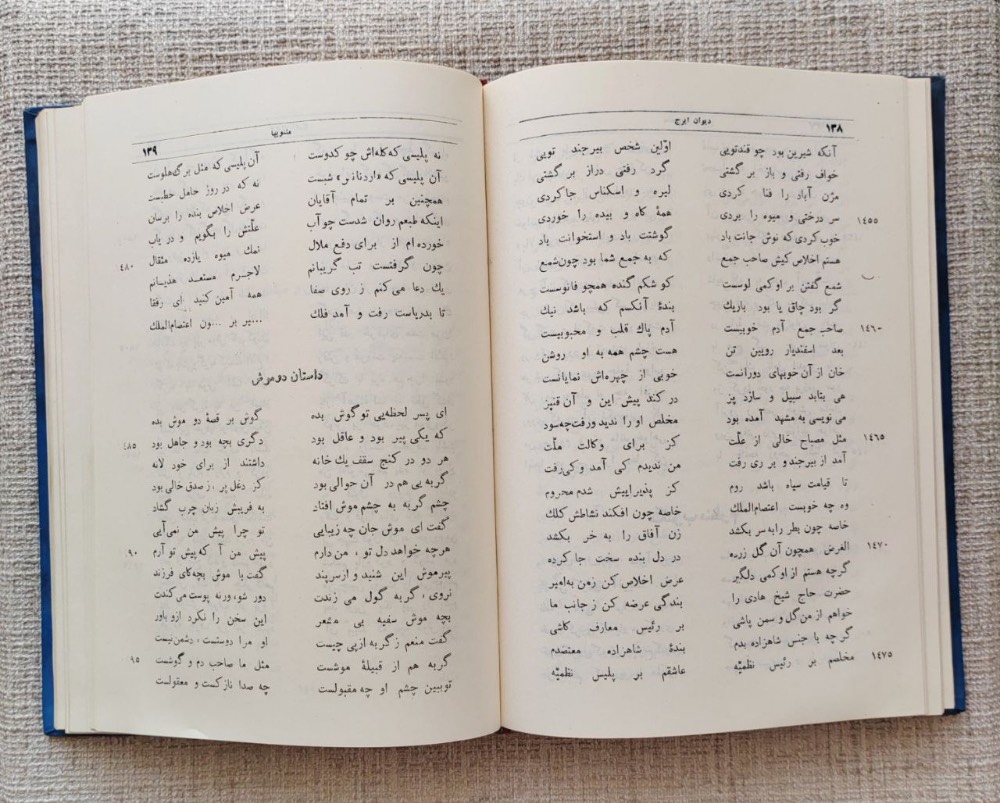 ۱۳۸ دیوان ایرج
آنکه شیرین بود چو قندتویی اوّلین شخص بیرجند تویی
خواف رفتی و باز بر گشتی گرد رفتی دراز بر گشتی
مژن آباد را فنا کردی لیره و اسکناس جاکردی
۱٤٥٥ سر درختی و میوه را بردی همهٔ کاه و بیده را خوردی
خوب کردی که نوش جانت باد گوشتت باد و استخوانت باد
هستم اخلاص کیش صاحب جمع که به جمع شما بود چون‌شمع
شمع گفتن بر او کمی لوسست کو شکم گنده همچو فانوست
گر بود چاق یا بود باریك بندهٔ آنکسم که باشد نیك
۱٤٦۰ صاحب جمع آدم خوبیست آدم پاك قلب و محبوبیست
بعد اسفندیار رویین تن هست چشم همه به او روشن
خان از آن خوبهای دورانست خوبی از چهره‌اش نمایانست
هی بتابد سبیل و سازد پز در کند پیش این و آن قنپز
می نویسی به مشهد آمده بود مخلص او را ندید ورفت‌چه‌سود
۱٤٦٥ مثل مصباح خالی از علّت کز برای وکالت ملّت
آمد از بیرجند و بر ری رفت من ندیدم کی آمد و کی‌رفت
تا قیامت سیاه باشد روم کز پذیراییش شدم محروم
وه چه خوبست اعتصام‌الملك خاصه چون افکند نشاطش کلك
خاصه چون بطر را به سر بکشد زن آفاق را به خر بکشد
۱٤۷۰ الغرض همچون آن گل زرده در دل بنده سخت جا کرده
گرچه هستم از او کمی دلگیر عرض اخلاص کن زمن به‌امیر
حضرت حاج شیخ هادی را بندگی عرضه کن ز جانب ما
خواهم از من‌گل و سمن پاشی بر رئیس معارف کاشی
گر چه با جنس شاهزاده بدم بندهٔ شاهزاده معتضدم
۱٤۷٥ مخلصم بر رئیس نظمیّه عاشقم بر پلیس نظمیّه
مثنویها ۱۳۹
نه پلیسی که کله‌اش چو کدوست آن پلیسی که مثل برگ هلوست
آن پلیسی که «اردنانس» شبست نه که در روز حامل حطبست
همچنین بر تمام آقایان عرض اخلاص بنده را برسان
اینکه طبعم روان شدست چو آب علّتش را بگویم و در یاب
٤۸۰ خورده ام از برای دفع ملال نمك میوه یازده مثقال
چون گرفتست تب گریبانم لاجرم مستعد هذیانم
یك دعا می کنم ز روی صفا همه آمین کنید ای رفقا
تا بدریاست رفت و آمد فلك ...یر بر ...ون اعتصام‌الملك
داستان دو موش
ای پسر لحظه‌یی تو گوش بده گوش بر قصهٔ دو موش بده
٤۸٥ که یکی پیر بود و عاقل بود دگری بچه بود و جاهل بود
هر دو در کنج سقف یك خانه داشتند از برای خود لانه
گربه یی هم در آن حوالی بود کز دغل پر ، ز صدق خالی بود
چشم گربه به چشم موش افتاد به فریبش زبان چرب گشاد
گفت ای موش جان چه زیبایی تو چرا پیش من نمی‌آیی
۹۰ هرچه خواهد دل تو ، من دارم پیش من آ که پیش تو آرم
پیرموش این شنید و ازسر پند گفت با موش بچه‌کای فرزند
نروی ، گربه گول می زندت دور شو، ورنه پوست می‌کندت
بچه موش سفیه بی مشعر این سخن را نکرد ازو باور
گفت منعم ز گربه ازپی چیست او مرا دوستست ، دشمن‌نیست
۹٥ گربه هم از قبیلهٔ موشست مثل ما صاحب دم و گوشست
تو ببین چشم او چه مقبولست چه صدا نازکست و معقولست